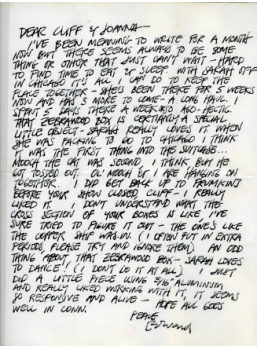 DEAR CLIFF & JOANNA—
I'VE BEEN MEANING TO WRITE FOR A MONTH
NOW BUT THERE SEEMS ALWAYS TO BE SOME
THING OR OTHER THAT JUST CAN'T WAIT - HARD
TO FIND TIME TO EAT OR SLEEP. WITH SARAH OFF
IN CHICAGO IT'S ALL I CAN DO TO KEEP THE
PLACE TOGETHER - SHE'S BEEN THERE FOR 5 WEEKS
NOW AND HAS 5 MORE TO COME - A LONG HAUL. I
SPENT 5 DAYS THERE A WEEKEND AGO - HECTIC
THAT ZEBRAWOOD BOX IS CERTAINLY A SPECIAL
LITTLE OBJECT - SARAH REALLY LOVES IT. WHEN
SHE WAS PACKING TO GO TO CHICAGO I THINK
IT WAS THE FIRST THING INTO THE SUITCASE -
MOOCH THE CAT WAS SECOND I THINK BUT HE
GOT TOSSED OUT. OL' MOOCH & I ARE HANGING ON
TOGETHER. I DID GET BACK UP TO
BEFORE YOUR SHOW CLOSED CLIFF - I REALLY
LIKED IT. I DON'T UNDERSTAND WHAT THE
CROSS SECTION OF YOUR BOXES IS LIKE, I'VE
SURE TRIED TO FIGURE IT OUT - THE ONE'S LIKE
THE COPPER SHIP (I OFTEN PUT IN EXTRA
PERIODS, PLEASE TRY AND IGNORE THEM) AN ODD
THING ABOUT THAT ZEBRAWOOD BOX - SARAH LOVES
TO DANCE! (I DON'T DO IT AT ALL) I JUST
DID A LITTLE PIECE USING 5/16" ALUMINUM
AND REALLY LIKED WORKING WITH IT, IT SEEMS
SO RESPONSIVE AND ALIVE - HOPE ALL GOES
WELL IN CONN.
PEACE